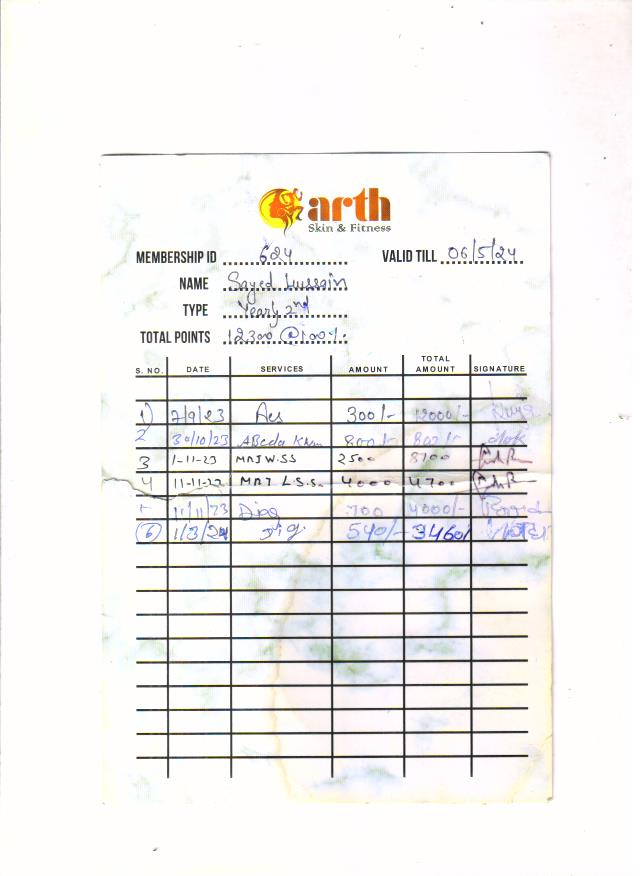 arth
Skin & Fitness
MEMBERSHIP ID 624 VALID TILL 06/5/24
NAME Sayed Hussain
TYPE Yearly 2nd
TOTAL POINTS 12300 @100%
S. NO. DATE SERVICES AMOUNT TOTAL AMOUNT SIGNATURE
1) 7/9/23 300/- 12000/-
2 30/10/23 ABeda Khan 800/-
3 1-11-23 2500 8700
4 11-11-23 4000 4700
11/11/23 700 4000/-
6 1/3/24 540/- 3460/